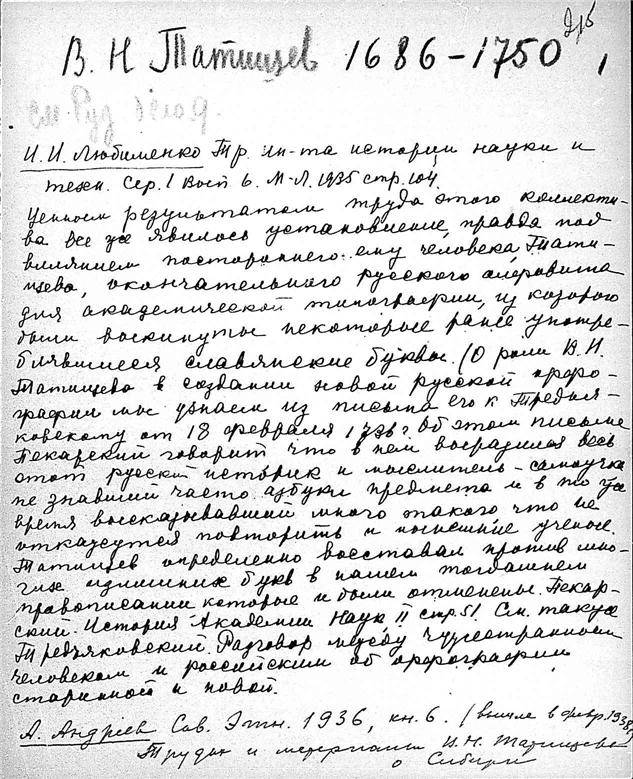 В. Н Татищев 1686-1750
см. Руз
И. И. Любименко Тр. Ин-та истории науки и
техн. Сер. 1 Вып 6. М-Л. 1935 стр. 104.
Ценным результатом труда этого коллекти-
ва все же явилось установление, правда под
влиянием постороннего ему человека, Тати-
щева, окончательного русского алфавита
для академической типографии, из которого
были выкинуты некоторые ранее употре-
блявшиеся славянские буквы. (О роли В. Н.
Татищева в создании новой русской орфо-
графии мы узнаем из письма его к Тредья-
ковскому от 18 февраля 1736 г. Об этом письме
Пекарский говорит что в нем выразился весь
этот русский историк и мыслитель-самоучка
не знавший часто азбуки предмета и в то же
время высказывавший много такого что не
откажутся повторить и нынешние ученые.
Татищев определенно восставал против мно-
гих лишних букв в нашем тогдашнем
правописании которые и были отменены. Пекар-
ский. История Академии Наук II стр. 51. См. также
Тредьяковский. Разговор между чужестранным
человеком и российским об орфографии
старинной и новой.
А. Андреев Сов. Этн. 1936, кн. 6. (вышла в февр. 1938)
Труды и материалы В. Н. Татищева
о Сибири